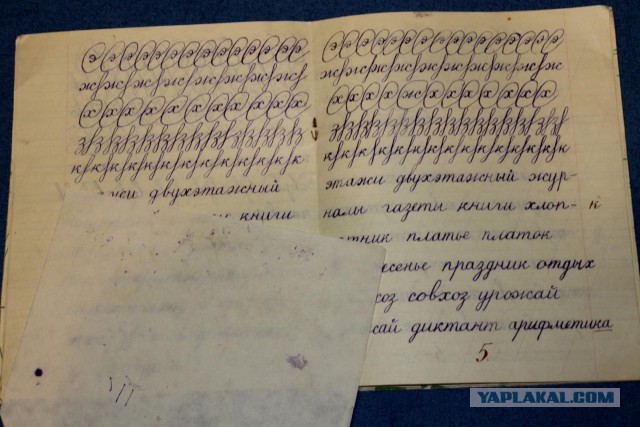 э э э э э э э э э э э э
ж ж ж ж ж ж ж ж ж
х х х х х х х х х х х
з з з з з з з з з з з
к к к к к к к к к к к к
жи двухэтажный
книги
э э э э э э э э э э э э э э э
ж ж ж ж ж ж ж ж ж ж
х х х х ж х х х х х х х
з з з з з з з з з з з з
к к к к к к к к к к к к к
этажи двухэтажный жур-
налы газеты книги хлоп- н
тник платье платок
женье праздник отдых
хоз совхоз урожай
жай диктант арифметика
5
YAPLAKAL.COM